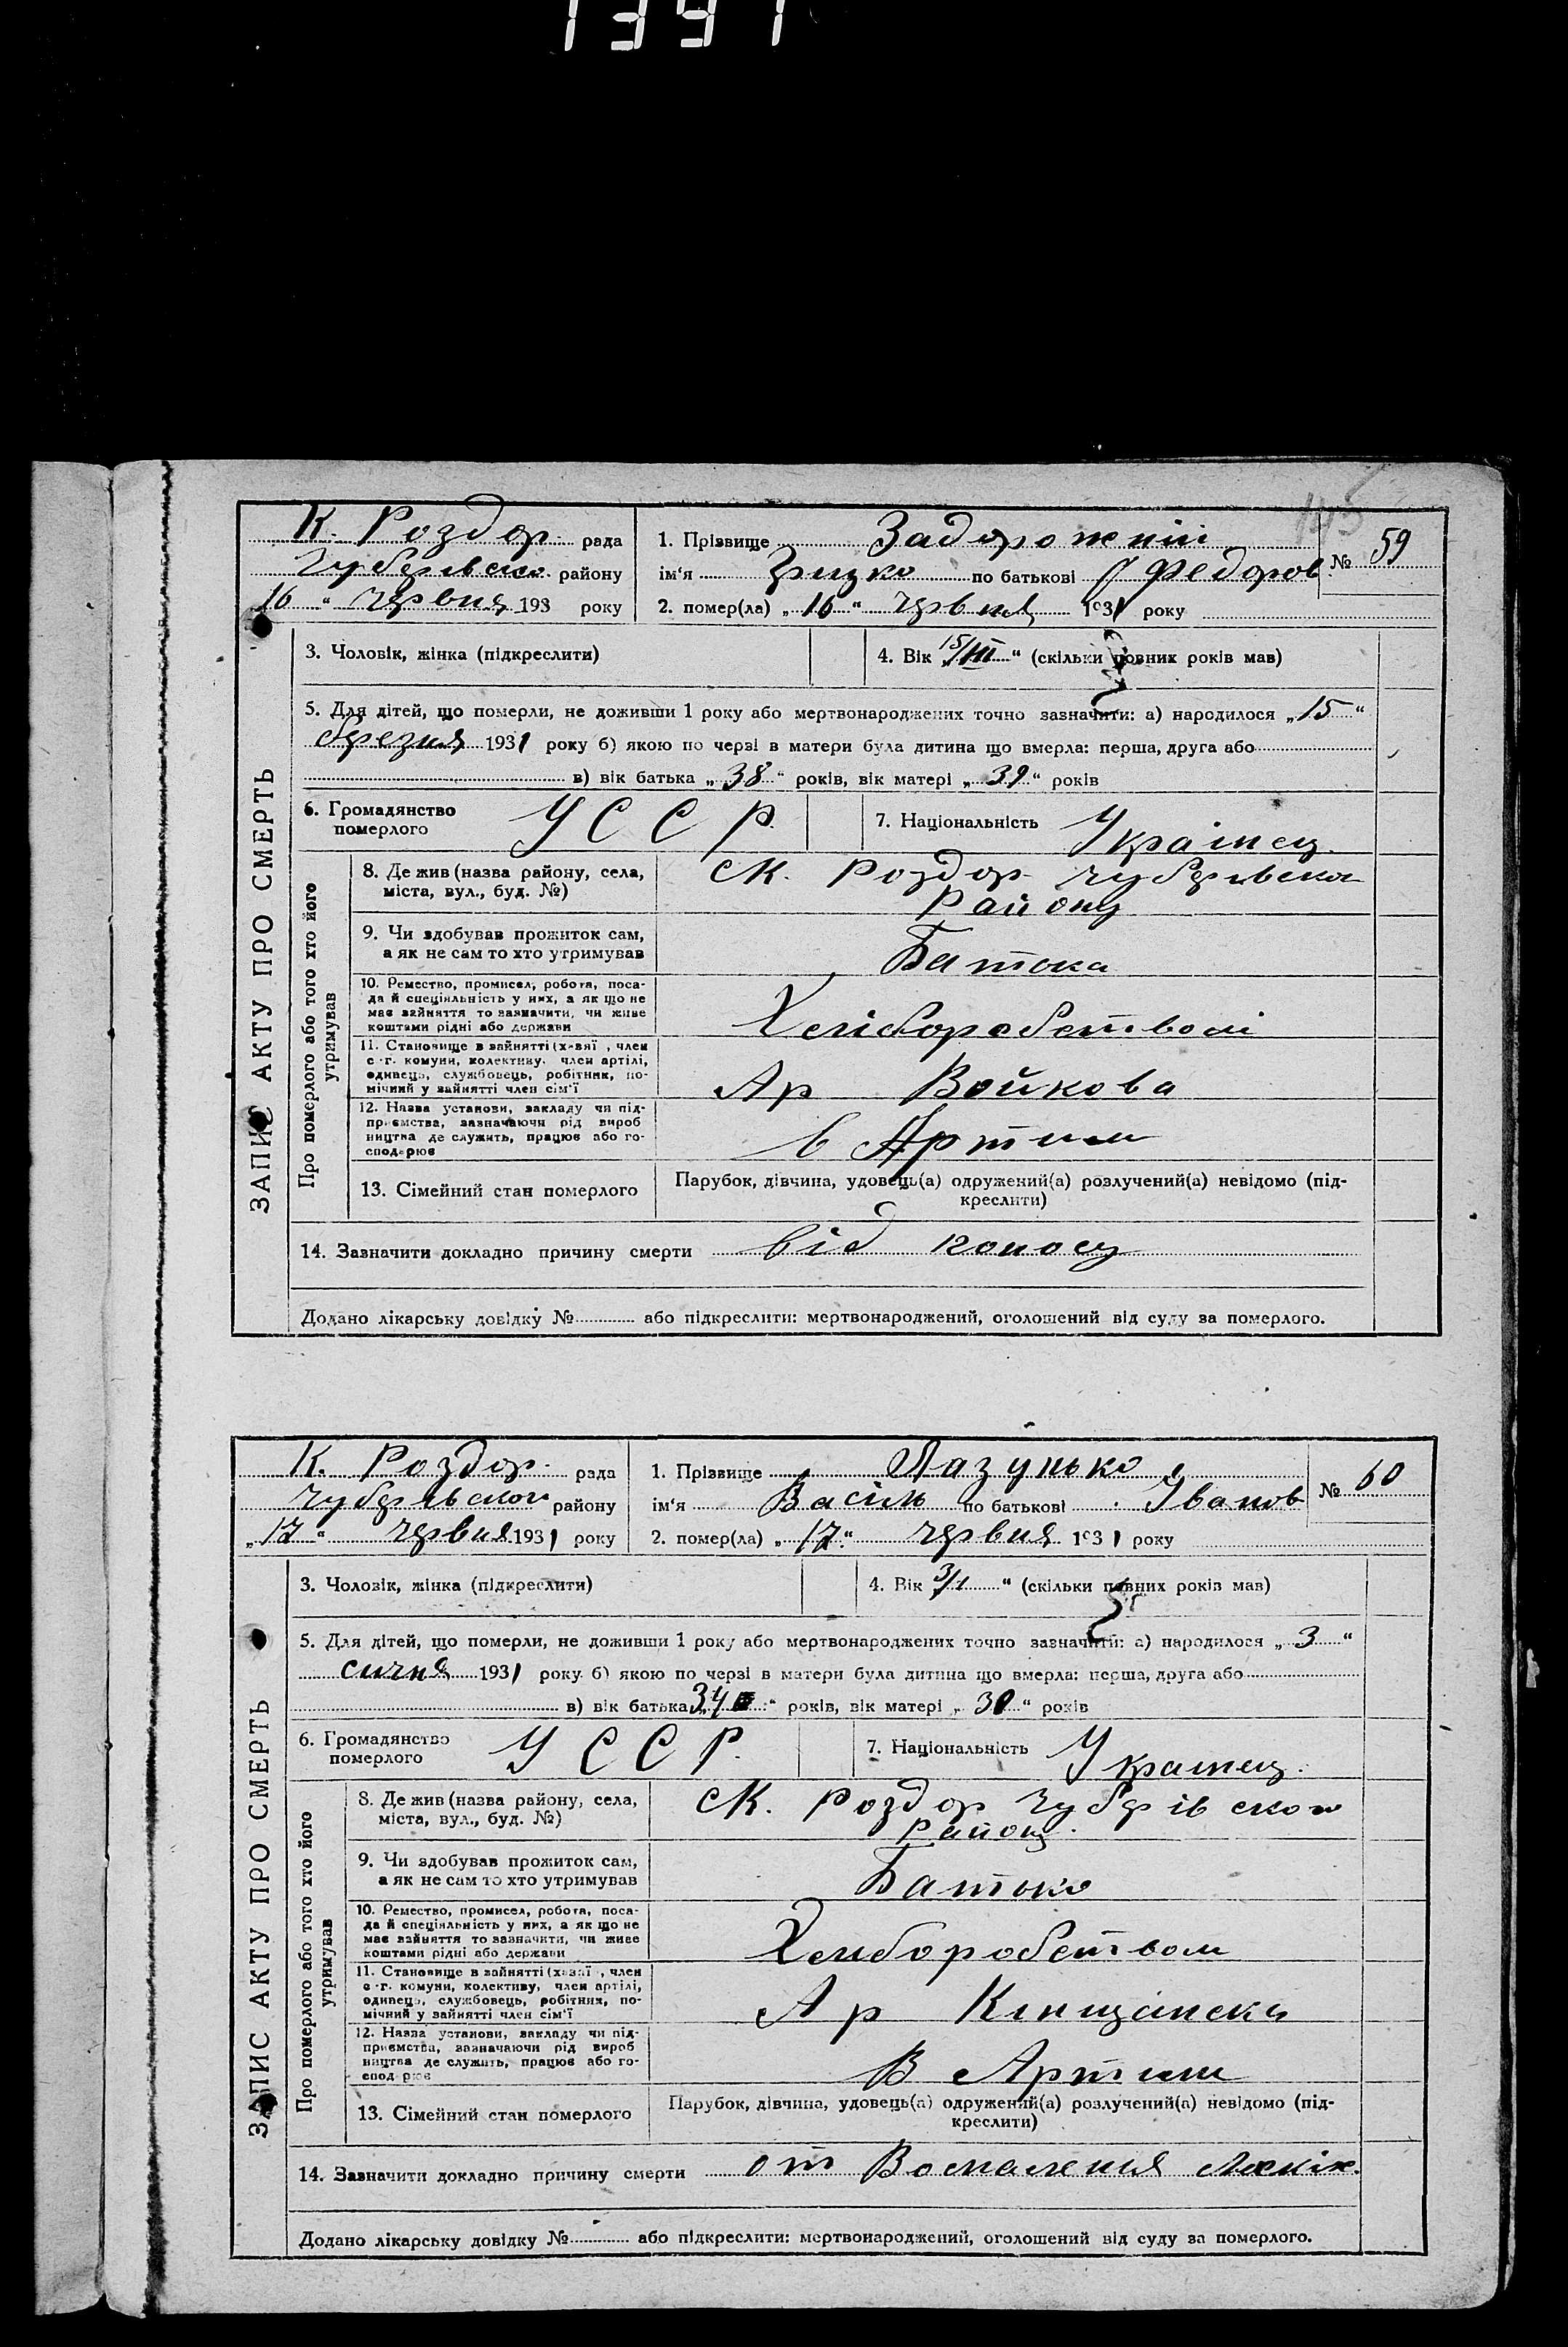 1397
145
К. Роздор. рада
Чубарівсько району
16 " червня 193 року
1. Прізвище Задорожній
№ 59
ім'я Грицко по батькові Федоров
2. помер(ла) „ 16 " червня 1931 року
3. Чоловік, жінка (підкреслити)
4. Вік 15/III " (скільки повних років мав)
5. Для дітей, що померли, не доживши 1 року або мертвонароджених точно зазначити: а) народилося „ 15 "
березня 1931 року б) якою по черзі в матери була дитина що вмерла: перша, друга або
в) вік батька „ 38 " років, вік матері „ 39 " років
6. Громадянство
померлого
У С С Р.
7. Національність Украінец.
ЗАПИС АКТУ ПРО СМЕРТЬ
Про померлого або того хто його
утримував
8. Де жив (назва району, села,
міста, вул., буд. №)
с К. Роздор Чубарівска
Району
9. Чи здобував прожиток сам,
а як не сам то хто утримував
Батока
10. Ремество, промисел, робота, поса-
да й спеціяльність у них, а як що не
має зайняття то зазначити, чи живе
коштами рідні або держави
11. Становище в зайнятті (хазяї , член
с.-г. комуни, колективу, член артілі,
одинець, службовець, робітник, по-
мічний у зайнятті член сім'ї
Ар Войкова
12. Назва установи, закладу чи під-
приємства, зазначаючи рід вироб
ництва де служить, працює або го-
сподарює
в Артили
13. Сімейний стан померлого
Парубок, дівчина, удовець(а) одружений(а) розлучений(а) невідомо (під-
креслити)
14. Зазначити докладно причину смерти від поносу
Додано лікарську довідку № або підкреслити: мертвонароджений, оголошений від суду за померлого.
К. Роздор. рада
Чубарівской району
„ 17 " червня 1931 року
1. Прізвище Лазунько
№ 60
ім'я Василь по батькові Іванов
2. помер(ла) „ 17 " червня 1931 року
3. Чоловік, жінка (підкреслити)
4. Вік 3/1 " (скільки повних років мав)
5. Для дітей, що померли, не доживши 1 року або мертвонароджених точно зазначити: а) народилося „ 3 "
сичня 1931 року б) якою по черзі в матери була дитина що вмерла: перша, друга або
в) вік батька „ 34 " років, вік матері „ 30 " років
6. Громадянство
померлого
У С С Р.
7. Національність Украинец.
ЗАПИС АКТУ ПРО СМЕРТЬ
Про померлого або того хто його
утримував
8. Де жив (назва району, села,
міста, вул., буд. №)
с К. Роздор Чубарівской
Району.
9. Чи здобував прожиток сам,
а як не сам то хто утримував
Батько
10. Ремество, промисел, робота, поса-
да й спеціяльність у них, а як що не
має зайняття то зазначити, чи живе
коштами рідні або держави
Хлиборобством
11. Становище в зайнятті (хазяї , член
с.-г. комуни, колективу, член артілі,
одинець, службовець, робітник, по-
мічний у зайнятті член сім'ї
Ар
12. Назва установи, закладу чи під-
приємства, зазначаючи рід вироб
ництва де служить, працює або го-
сподарює
В Артили
13. Сімейний стан померлого
Парубок, дівчина, удовець(а) одружений(а) розлучений(а) невідомо (під-
креслити)
14. Зазначити докладно причину смерти от Воспаления
Додано лікарську довідку № або підкреслити: мертвонароджений, оголошений від суду за померлого.